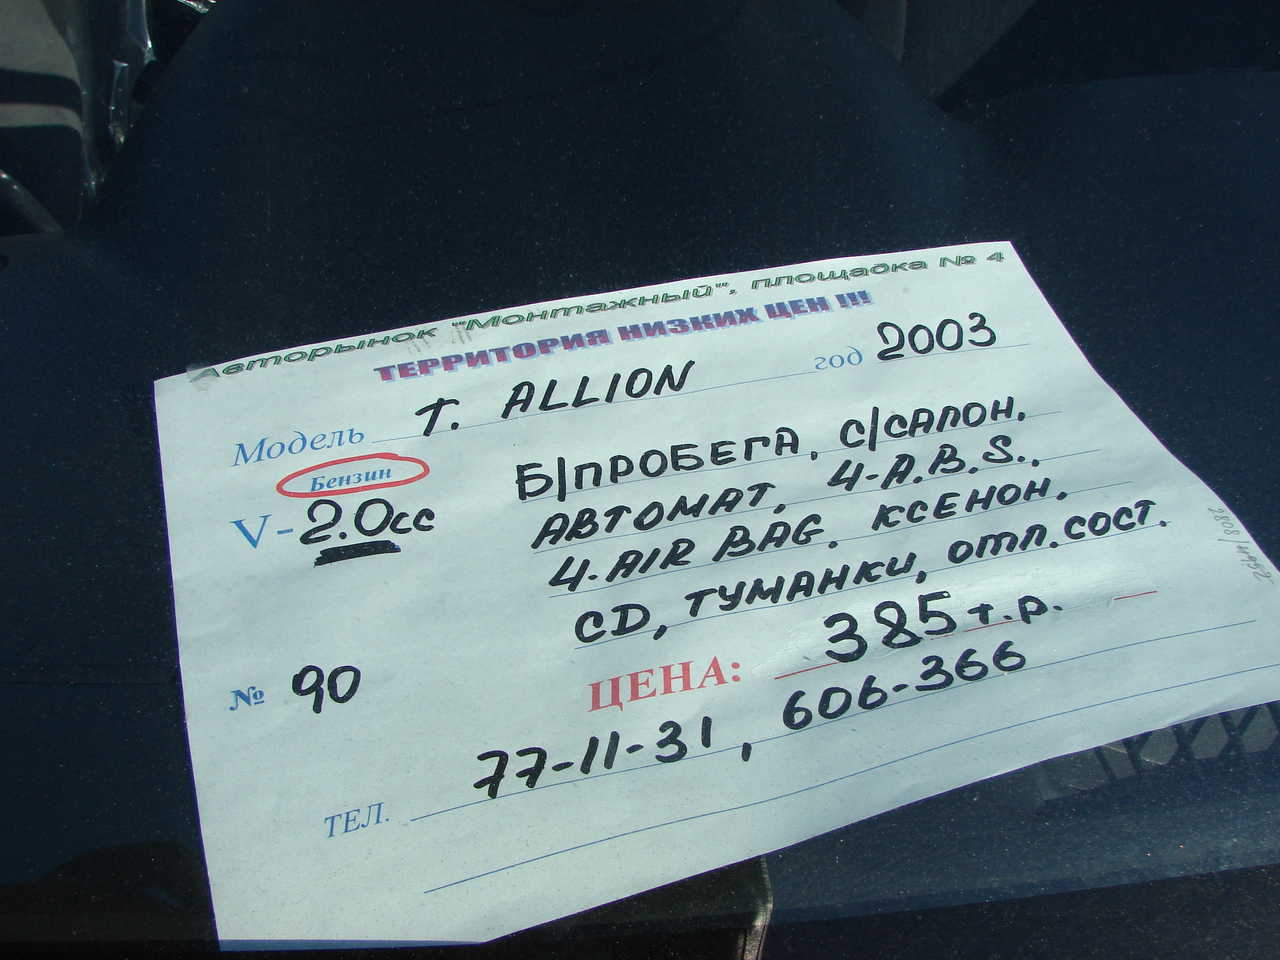 Авторынок "Монтажный", площадка № 4
ТЕРРИТОРИЯ НИЗКИХ ЦЕН !!!
Модель Т. ALLION год 2003
Бензин
V-2.0сс
Б/ПРОБЕГА, С/САЛОН.
АВТОМАТ, 4-A.B.S.,
4-AIR BAG. КСЕНОН.
CD, ТУМАНКИ, ОТЛ.СОСТ.
ЦЕНА: 385 т.р.
№ 90
ТЕЛ. 77-11-31, 606-366